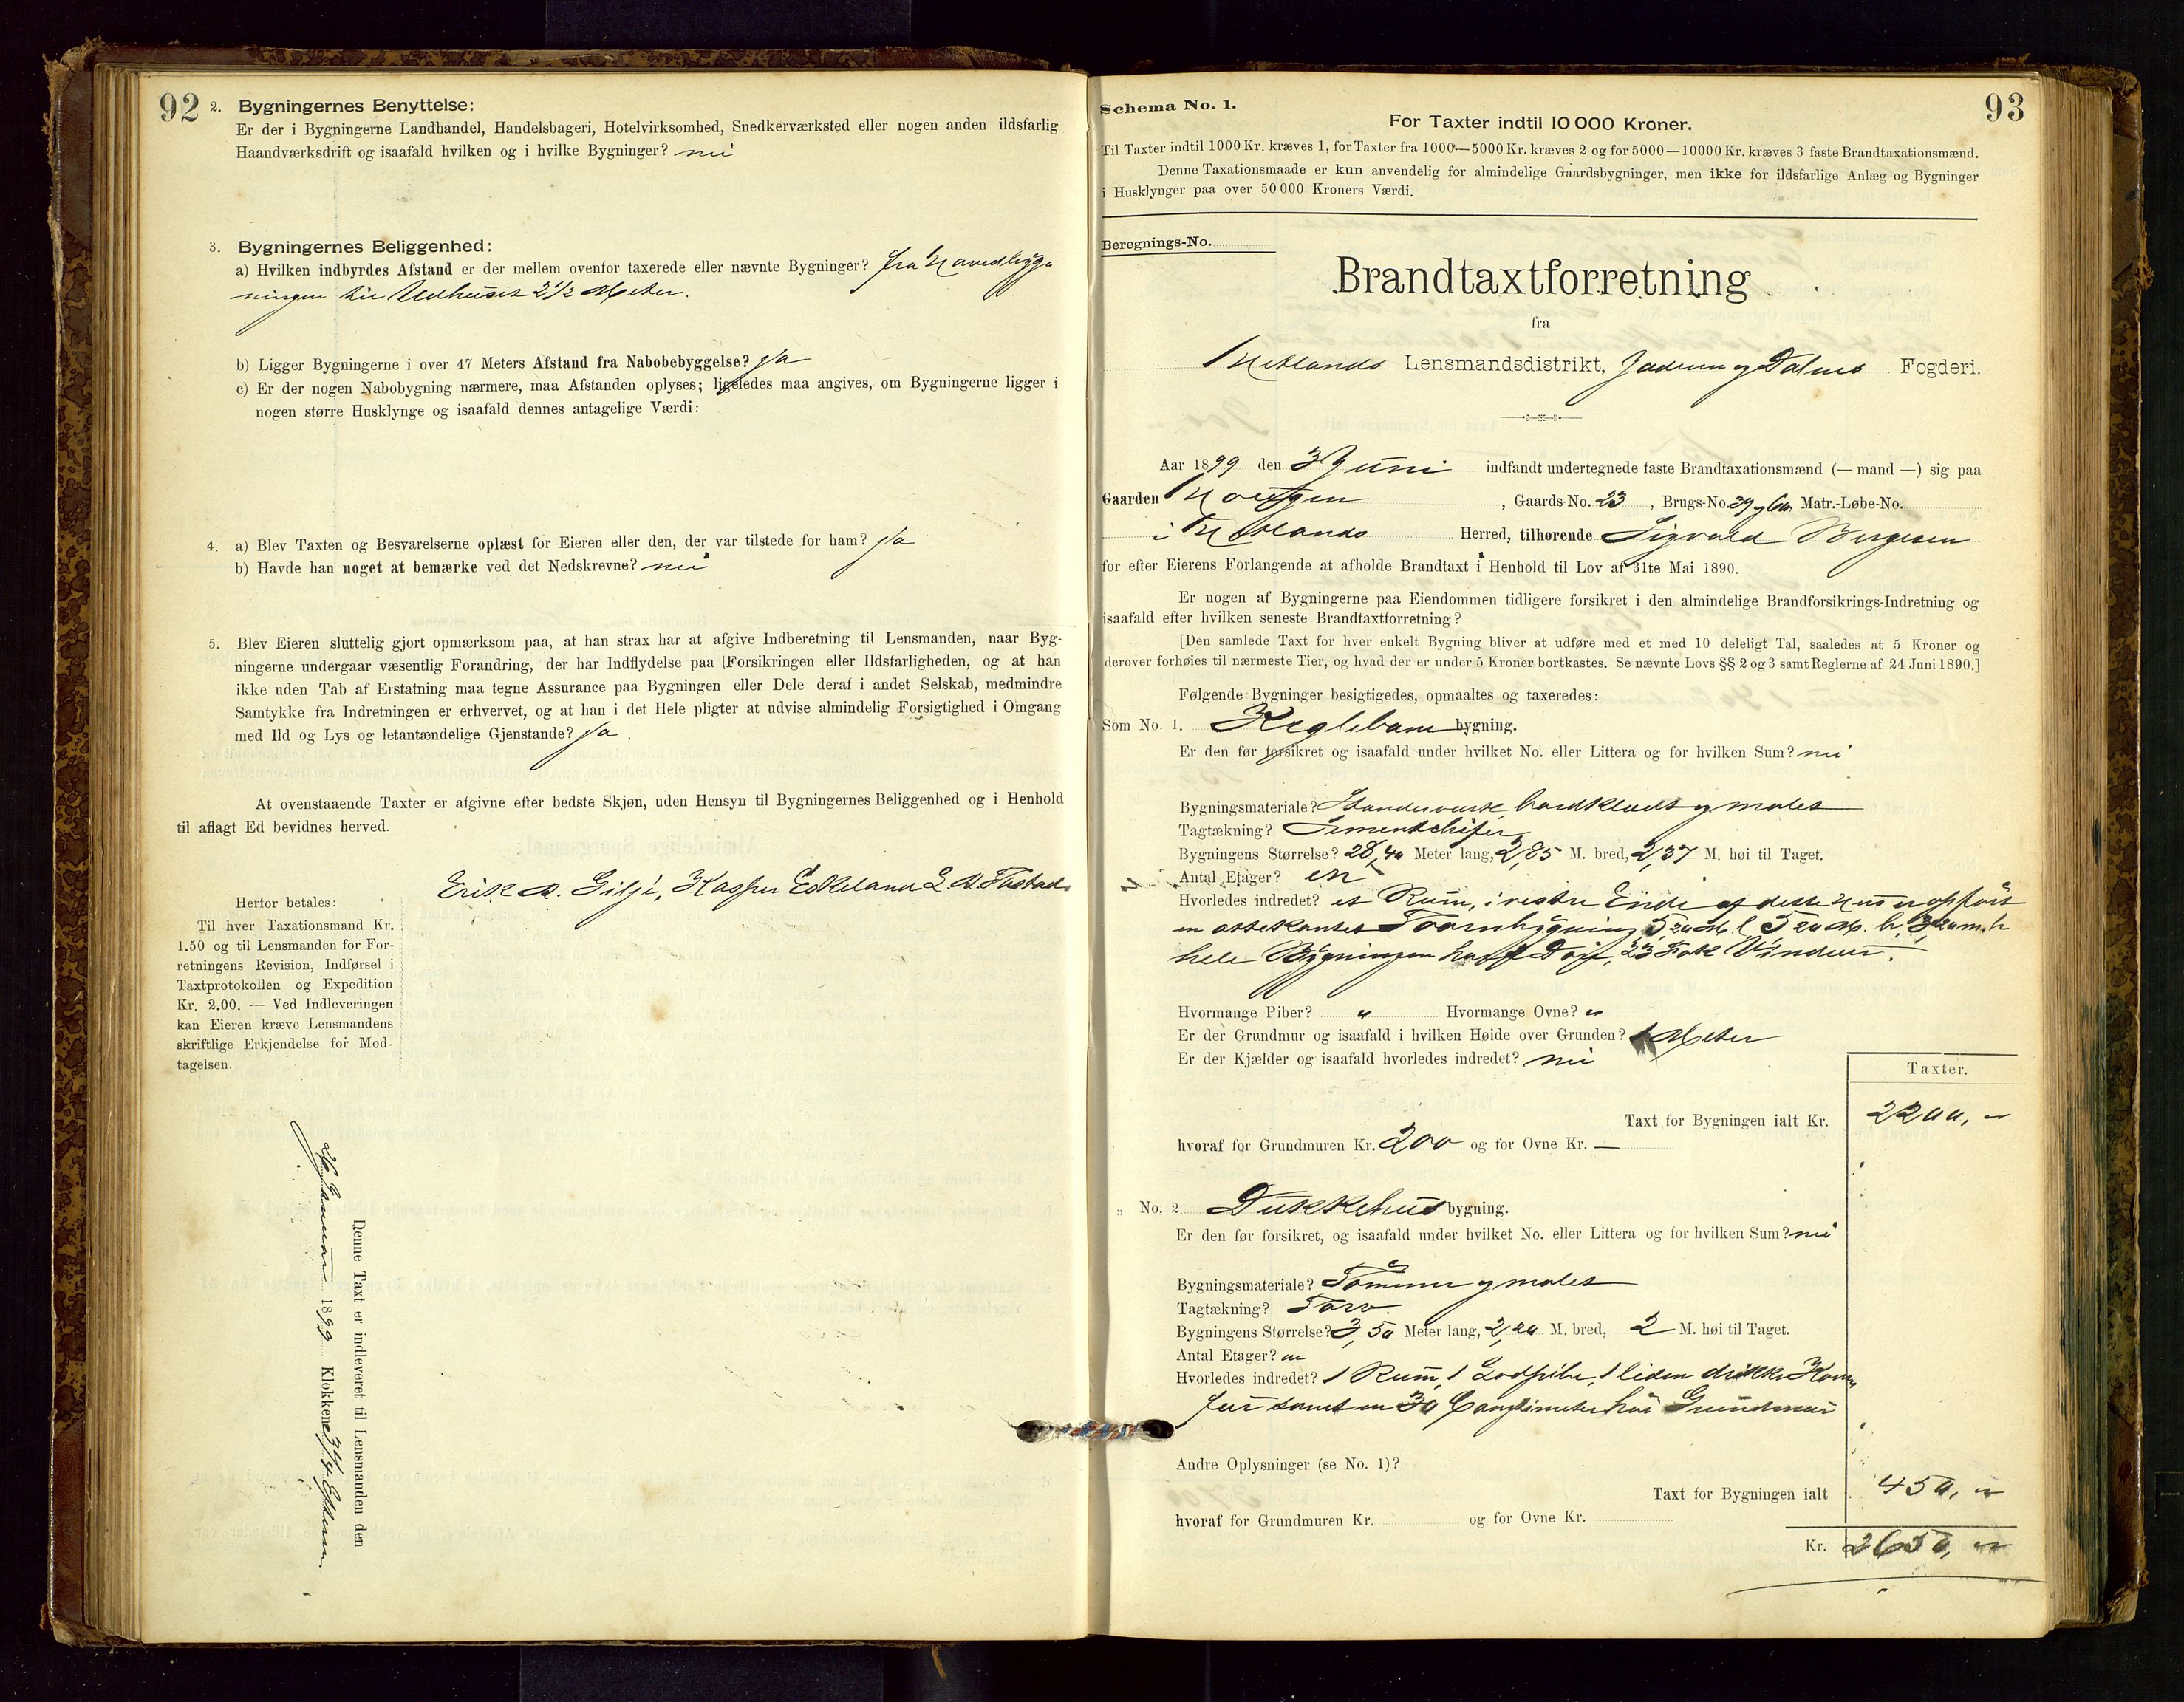 92
2. Bygningernes Benyttelse:
Er der i Bygningerne Landhandel, Handelsbageri, Hotelvirksomhed, Snedkerværksted eller nogen anden ildsfarlig
Haandværksdrift og isaafald hvilken og i hvilke Bygninger? nei
3. Bygningernes Beliggenhed:
a) Hvilken indbyrdes Afstand er der mellem ovenfor taxerede eller nævnte Bygninger? fra Hovedbyg-
ningen til Udhuset 2 1/2 Meter.
b) Ligger Bygningerne i over 47 Meters Afstand fra Nabobebyggelse? Ja
c) Er der nogen Nabobygning nærmere, maa Afstanden oplyses; ligeledes maa angives, om Bygningerne ligger i
nogen større Husklynge og isaafald dennes antagelige Værdi:
4. a) Blev Taxten og Besvarelserne oplæst for Eieren eller den, der var tilstede for ham? Ja
b) Havde han noget at bemærke ved det Nedskrevne? nei
5. Blev Eieren sluttelig gjort opmærksom paa, at han strax har at afgive Indberetning til Lensmanden, naar Byg-
ningerne undergaar væsentlig Forandring, der har Indflydelse paa Forsikringen eller Ildsfarligheden, og at han
ikke uden Tab af Erstatning maa tegne Assurance paa Bygningen eller Dele deraf i andet Selskab, medmindre
Samtykke fra Indretningen er erhvervet, og at han i det Hele pligter at udvise almindelig Forsigtighed i Omgang
med Ild og Lys og letantændelige Gjenstande? Ja.
At ovenstaaende Taxter er afgivne efter bedste Skjøn, uden Hensyn til Bygningernes Beliggenhed og i Henhold
til aflagt Ed bevidnes herved.
Erik A. Gilje, Kasper Eskeland
Herfor betales:
Til hver Taxationsmand Kr.
1.50 og til Lensmanden for For-
retningens Revision, Indførsel i
Taxtprotokollen og Expedition
Kr. 2.00. — Ved Indleveringen
kan Eieren kræve Lensmandens
skriftlige Erkjendelse for Mod-
tagelsen.
Denne Taxt er indleveret til Lensmanden den
Januar 1899 Klokken 3 1/4 Efterm.
93
Schema No. 1.
For Taxter indtil 10 000 Kroner.
Til Taxter indtil 1000 Kr. kræves 1, for Taxter fra 1000—5000 Kr. kræves 2 og for 5000—10000 Kr. kræves 3 faste Brandtaxationsmænd.
Denne Taxationsmaade er kun anvendelig for almindelige Gaardsbygninger, men ikke for ildsfarlige Anlæg og Bygninger
i Husklynger paa over 50 000 Kroners Værdi.
Beregnings-No.
Brandtaxtforretning
fra
Hetlands Lensmandsdistrikt, Jæderen og Dalenes Fogderi.
Aar 1899 den 3 Juni indfandt undertegnede faste Brandtaxationsmænd (— mand —) sig paa
Gaarden , Gaards-No. 23, Brugs-No. 39 og 60, Matr.-Løbe-No.
i Hetlands Herred, tilhørende Sigvald Bergesen
for efter Eierens Forlangende at afholde Brandtaxt i Henhold til Lov af 31te Mai 1890.
Er nogen af Bygningerne paa Eiendommen tidligere forsikret i den almindelige Brandforsikrings-Indretning og
isaafald efter hvilken seneste Brandtaxtforretning?
[Den samlede Taxt for hver enkelt Bygning bliver at udføre med et med 10 deleligt Tal, saaledes at 5 Kroner og
derover forhøies til nærmeste Tier, og hvad der er under 5 Kroner bortkastes. Se nævnte Lovs §§ 2 og 3 samt Reglerne af 24 Juni 1890.]
Følgende Bygninger besigtigedes, opmaaltes og taxeredes:
Som No. 1. Keglebane bygning.
Er den før forsikret og isaafald under hvilket No. eller Littera og for hvilken Sum? nei
Bygningsmateriale? Standerværk, bordklædt og malet
Tagtækning? Sementskifer
Bygningens Størrelse? 28,40 Meter lang, 2,85 M. bred, 2,37 M. høi til Taget.
Antal Etager? en
Hvorledes indredet? et Rum, i vestre Ende af dette Hus er opført
en ottekantet Taarnbygning 5,20 M. l. 5,20 M. b. 3,20 m. h
hele Bygningen har 1 Dør, 23 Fak Vinduer.
Hvormange Piber? „ Hvormange Ovne? „
Er der Grundmur og isaafald i hvilken Høide over Grunden? 1 Meter
Er der Kjælder og isaafald hvorledes indredet? nei
Taxter.
Taxt for Bygningen ialt Kr. 2200, „
hvoraf for Grundmuren Kr. 200 og for Ovne Kr. —
„ No. 2. Dukkehus bygning.
Er den før forsikret, og isaafald under hvilket No. eller Littera og for hvilken Sum? nei
Bygningsmateriale? Tømmer og malet
Tagtækning? Torv.
Bygningens Størrelse? 3,50 Meter lang, 2,20 M. bred, 2 M. høi til Taget.
Antal Etager? en
Hvorledes indredet? 1 Rum, 1 Lodpibe, 1 liden dukke Kom-
fur samt en 30 høi Grundmur
Andre Oplysninger (se No. 1)?
Taxt for Bygningen ialt 450, „
hvoraf for Grundmuren Kr. og for Ovne Kr.
Kr. 2650, „